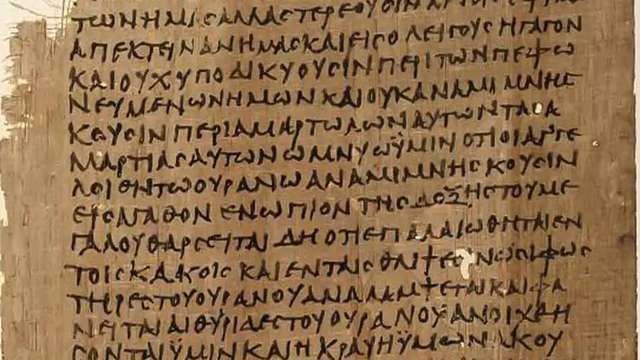 ΤΩΝΗΜΙϹΑΛΛΑϹΤΕΡΕΟΥϹΙΝ
ΑΠΕΚΤΕΙΝΑΝΗΜΑϹΚΑΙΕΙϹΟΛΕΙΓΟΥϹΗΓΑΓΟΝ
ΚΑΙΟΥΧΥΠΟΔΙΚΥΟΥϹΙΝΠΕΡΙΤΩΝΠΕΦΩ
ΝΕΥΜΕΝΩΝΗΜΩΝΚΑΙΟΥΚΑΝΑΜΙΜΝΗϹ
ΚΟΥϹΙΝΠΕΡΙΑΜΑΡΤΩΛΩΝΑΥΤΩΝΤΑϹΑ
ΜΑΡΤΙΑϹΑΥΤΩΝΩΜΝΥΩΫΜΙΝΟΤΙΟΙΑΓΓΕ
ΛΟΙΕΝΤΩΟΥΡΑΝΩΑΝΑΜΙΜΝΗϹΚΟΥϹΙΝ
ΕΙϹΑΓΑΘΟΝΕΝΩΠΙΟΝΤΗϹΔΟΞΗϹΤΟΥΜΕ
ΓΑΛΟΥΘΑΡϹΕΙΤΑΙΔΗΟΤΙΕΠΑΛΑΙΩΘΗΤΑΙΕΝ
ΤΟΙϹΚΑΚΟΙϹΚΑΙΕΝΤΑΙϹΘΛΙΨΕϹΙΝΩϹΙΦΩϹ
ΤΗΡΕϹΤΟΥΟΥΡΑΝΟΥΑΝΑΛΑΜΨΕΤΑΙΚΑΙΦΑ
ΝΕΙΤΑΙΑΙΘΥΡΙΔΕϹΤΟΥΟΥΡΑΝΟΥΑΝΟΙΧΘΗ
ϹΟΝΤΑΙΫΜΙΝΚΑΙΗΚΡΑΥΓΗΫΜΩΝΑΚΟΥ